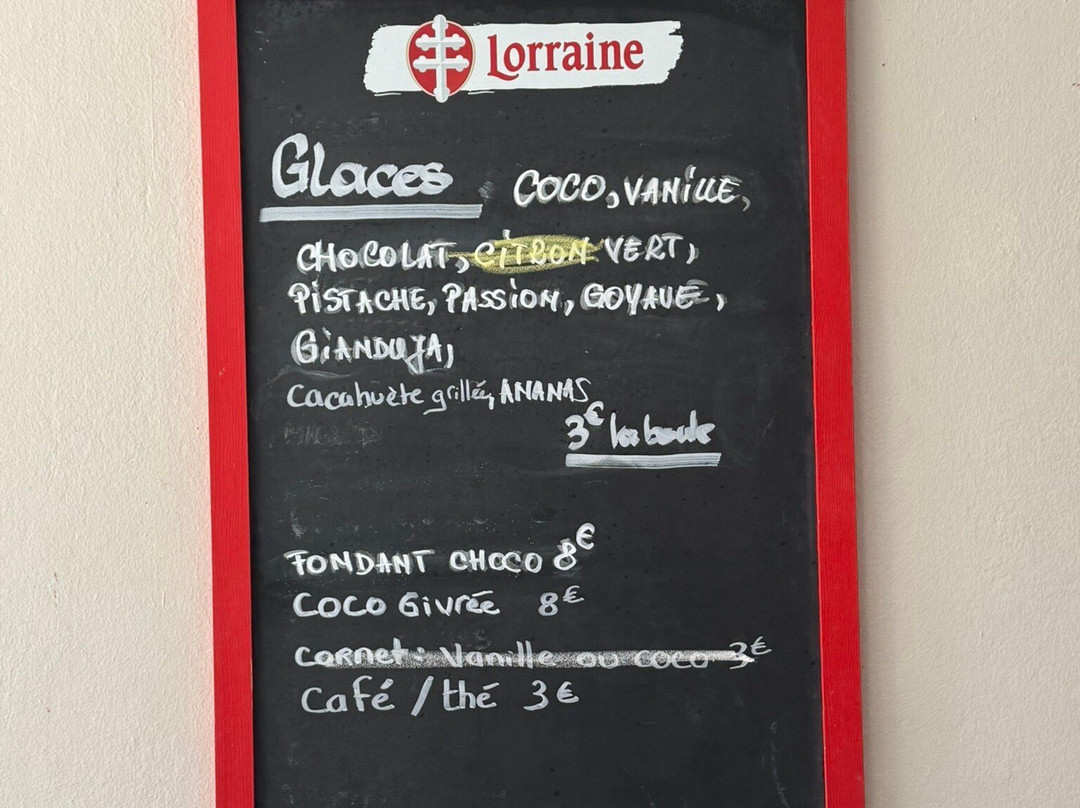 Lorraine
Glaces COCO, VANILLE,
CHOCOLAT, CITRON VERT,
PISTACHE, PASSION, GOYAVE,
GIANDUJA,
Cacahuète grillée, ANANAS
3€ la boule
FONDANT CHOCO 8€
COCO Givrée 8€
Cornet: Vanille ou coco 3€
Café / thé 3€